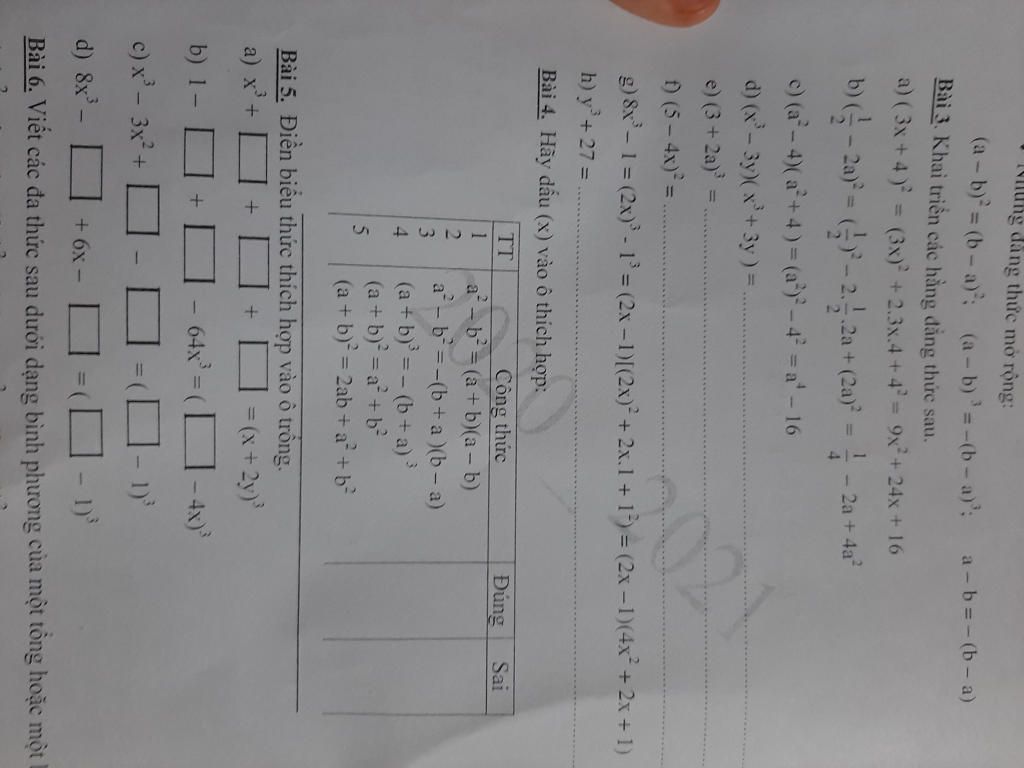 Những đẳng thức mở rộng:
(a – b)² = (b – a)²; (a – b)³ = –(b – a)³; a – b = – (b – a)
Bài 3. Khai triển các hằng đẳng thức sau.
a) ( 3x + 4 )² = (3x)² + 2.3x.4 + 4² = 9x² + 24x + 16
b) (1/2 – 2a)² = (1/2)² – 2.1/2.2a + (2a)² = 1/4 – 2a + 4a²
c) (a² – 4)( a² + 4 ) = (a²)² – 4² = a⁴ – 16
d) (x³ – 3y)( x³ + 3y ) = ........
e) (3 + 2a)³ = ........
f) (5 – 4x)² = ........
g) 8x³ – 1 = (2x)³ - 1³ = (2x –1)[(2x)² + 2x.1 + 1²) = (2x –1)(4x² + 2x + 1)
h) y³ + 27 = ........
Bài 4. Hãy dấu (x) vào ô thích hợp:
TT Công thức Đúng Sai
1 a² – b² = (a + b)(a – b)
2 a² – b² = –(b + a )(b – a)
3 (a + b)³ = – (b + a) ³
4 (a + b)² = a² + b²
5 (a + b)² = 2ab + a² + b²
2020 – 2021
Bài 5. Điền biểu thức thích hợp vào ô trống.
a) x³ + □ + □ + □ = (x + 2y)³
b) 1 – □ + □ – 64x³ = ( □ – 4x)³
c) x³ – 3x² + □ – □ = ( □ – 1)³
d) 8x³ – □ + 6x – □ = ( □ – 1)³
Bài 6. Viết các đa thức sau dưới dạng bình phương của một tổng hoặc một